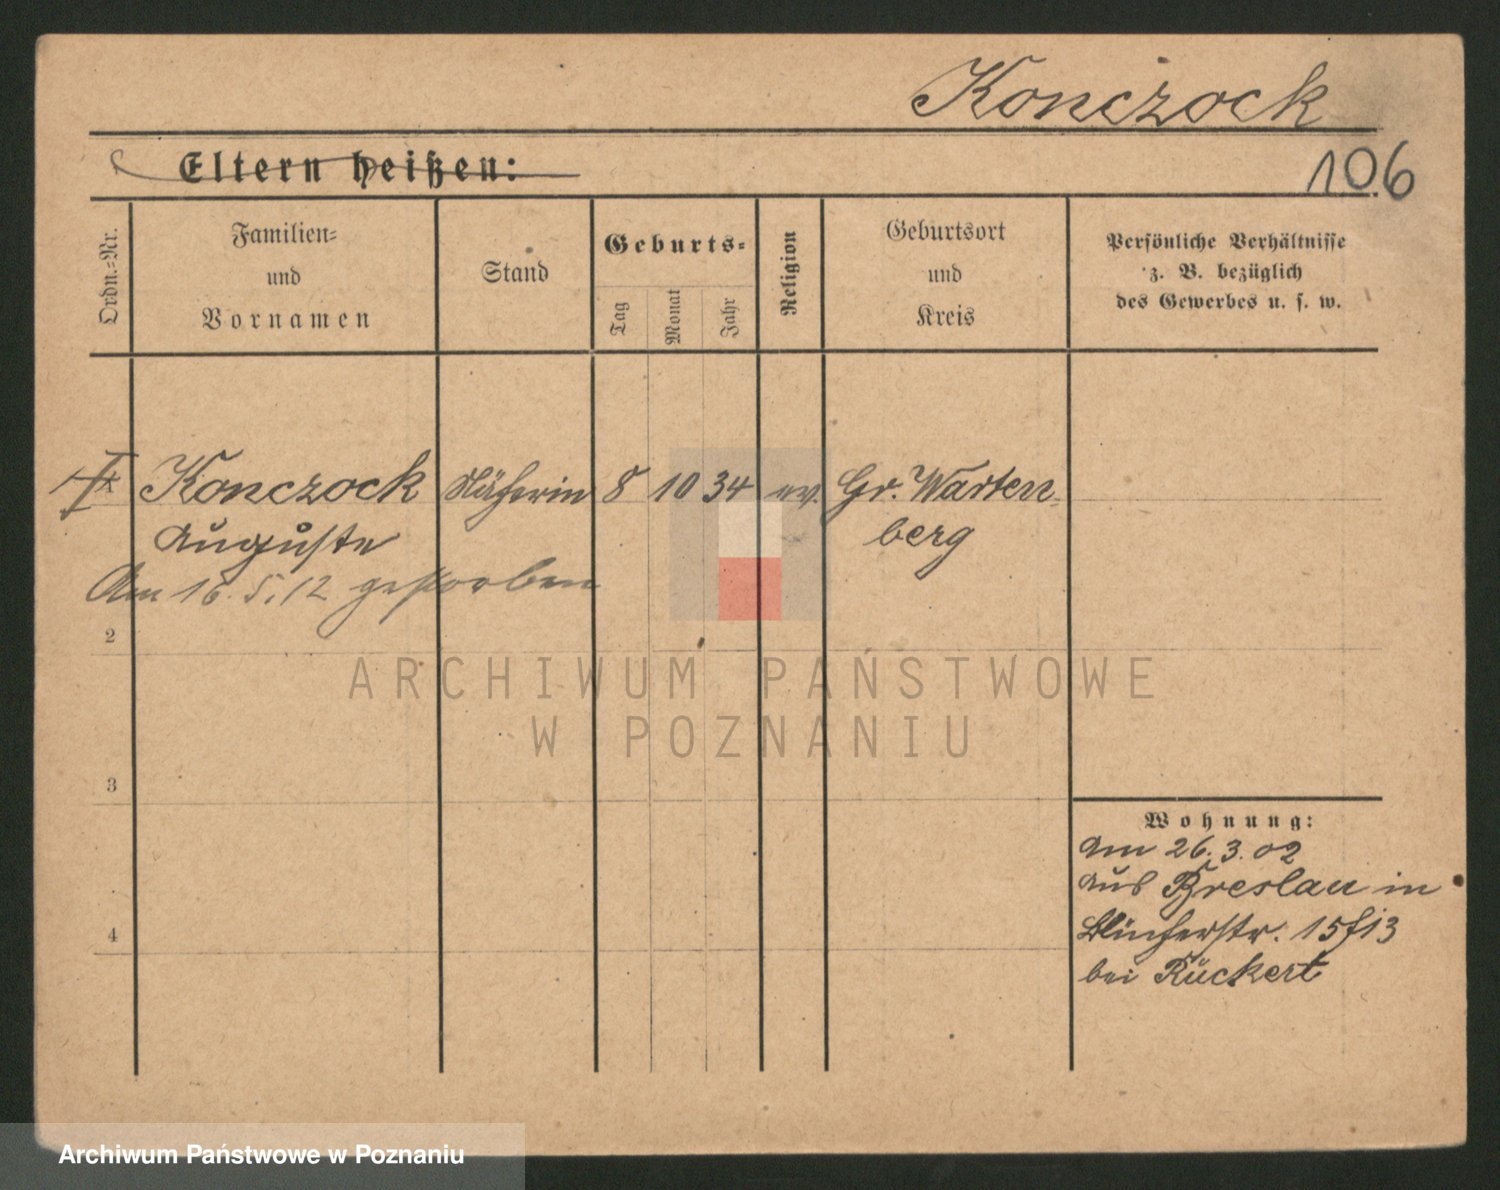 Konczock
106
Eltern heißen:
Ordn.=Nr.
Familien=
und
Vornamen
Stand
Geburts=
Tag
Monat
Jahr
Religion
Geburtsort
und
Kreis
Persönliche Verhältnisse
z. B. bezüglich
des Gewerbes u. s. w.
1 Konczock Näherin 8 10 34 ev. Gr. Warten
Auguste berg
Am 16. 5. 12 gestorben
2
3
4
Wohnung:
Am 26. 3. 02
aus Breslau in
Blücherstr. 15 f 13
bei Rückert
ARCHIWUM PAŃSTWOWE
W POZNANIU
Archiwum Państwowe w Poznaniu